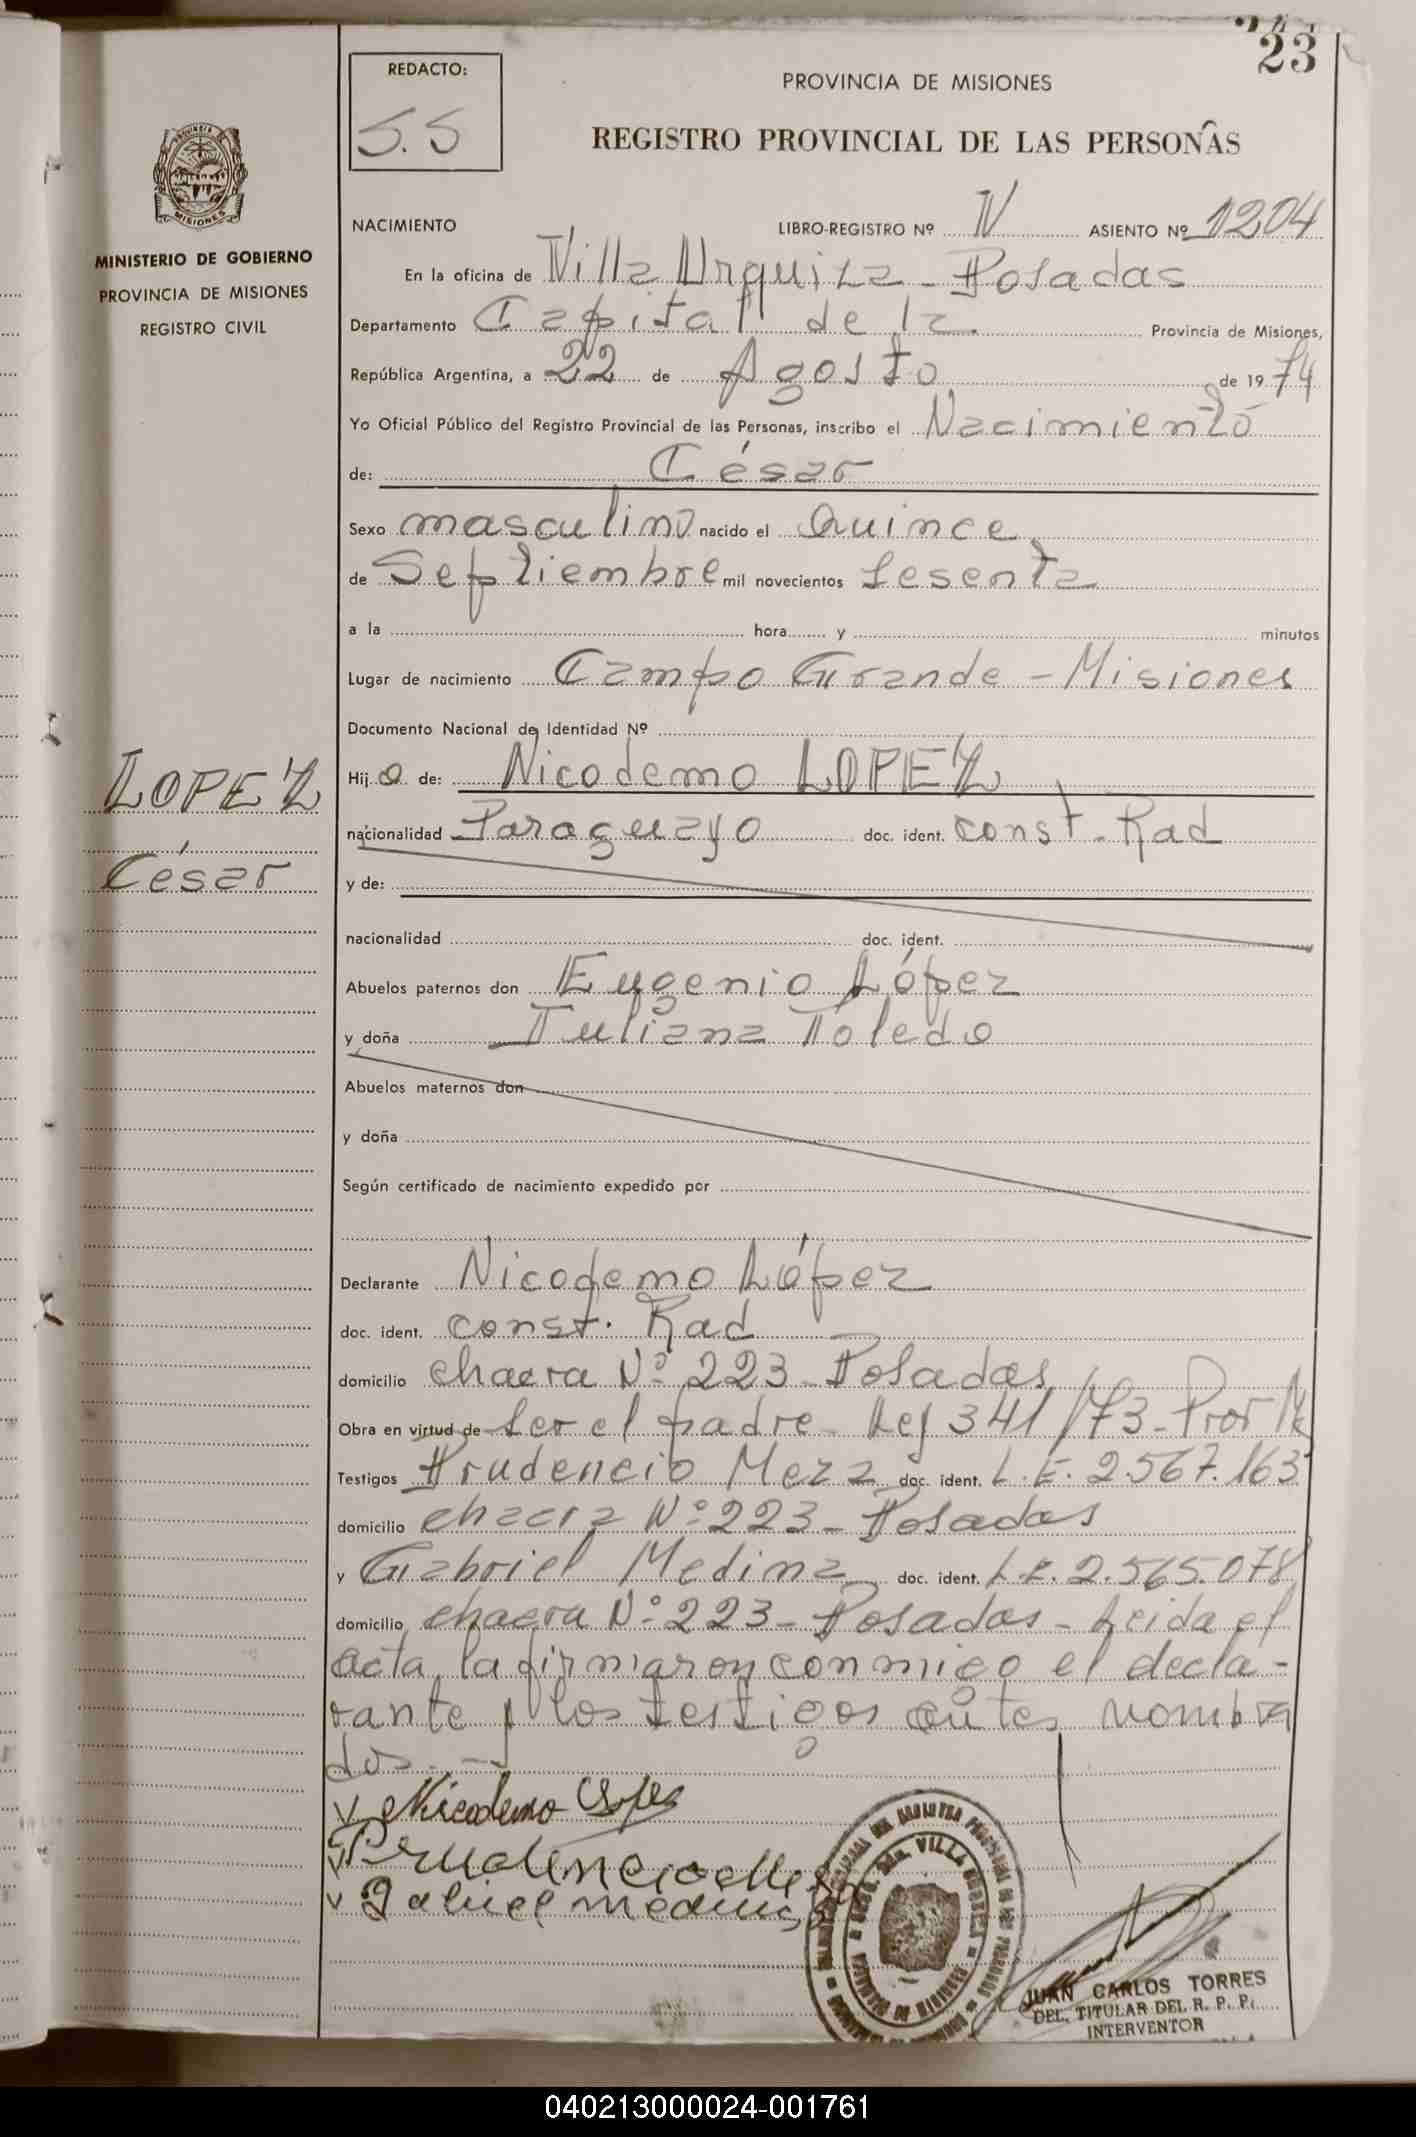 23
REDACTO:
S.S
PROVINCIA DE MISIONES
REGISTRO PROVINCIAL DE LAS PERSONAS
MISIONES
MINISTERIO DE GOBIERNO
PROVINCIA DE MISIONES
REGISTRO CIVIL
NACIMIENTO LIBRO-REGISTRO Nº IV ASIENTO Nº 1204
En la oficina de Villa Urquiza - Posadas
Departamento Capital de la Provincia de Misiones,
República Argentina, a 22 de Agosto de 1974
Yo Oficial Público del Registro Provincial de las Personas, inscribo el Nacimiento
de: César
Sexo masculino nacido el Quince
de Septiembre mil novecientos sesenta
a la hora y minutos
Lugar de nacimiento Campo Grande - Misiones
Documento Nacional de Identidad Nº
Hijo de: Nicodemo LOPEZ
LOPEZ
nacionalidad Paraguayo doc. ident. const. Rad
César
y de:
nacionalidad doc. ident.
Abuelos paternos don Eugenio López
y doña Juliana Toledo
Abuelos maternos don
y doña
Según certificado de nacimiento expedido por
Declarante Nicodemo López
doc. ident. const. Rad
domicilio chacra Nº 223 - Posadas
Obra en virtud de ser el padre - Ley 341/73 - Pror
Testigos Prudencio Meza doc. ident. L.E. 2.567.163
domicilio chacra Nº 223 - Posadas
y Gabriel Medina doc. ident. L.E. 2.565.078
domicilio chacra Nº 223 - Posadas - Leida el
acta, la firmaron conmigo el decla-
rante y los testigos antes nombra
dos.--
Nicodemo Lopez
Prudencio Meza
Gabriel medina
VILLA URQUIZA
JUAN CARLOS TORRES
DEL. TITULAR DEL R. P. P.
INTERVENTOR
040213000024-001761